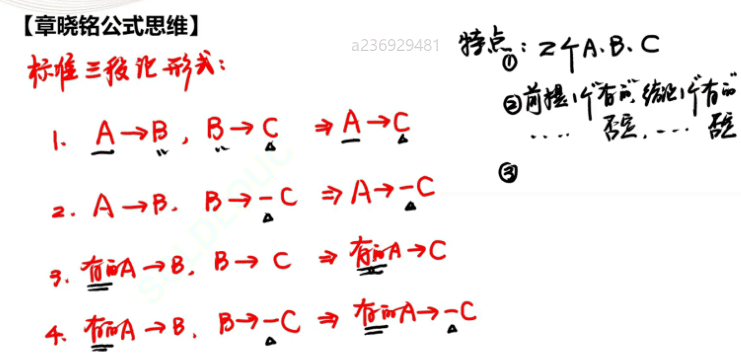 【章晓铭公式思维】
a236929481
标准三段论形式:
1. A→B, B→C ⇒ A→C
2. A→B. B→-C ⇒ A→-C
3. 有的A→B, B→C ⇒ 有的A→C
4. 有的A→B, B→-C ⇒ 有的A→-C
特点: ① 2个A.B.C
②前提1个"有的", 结论1个"有的"
.... 否定, .... 否定
③